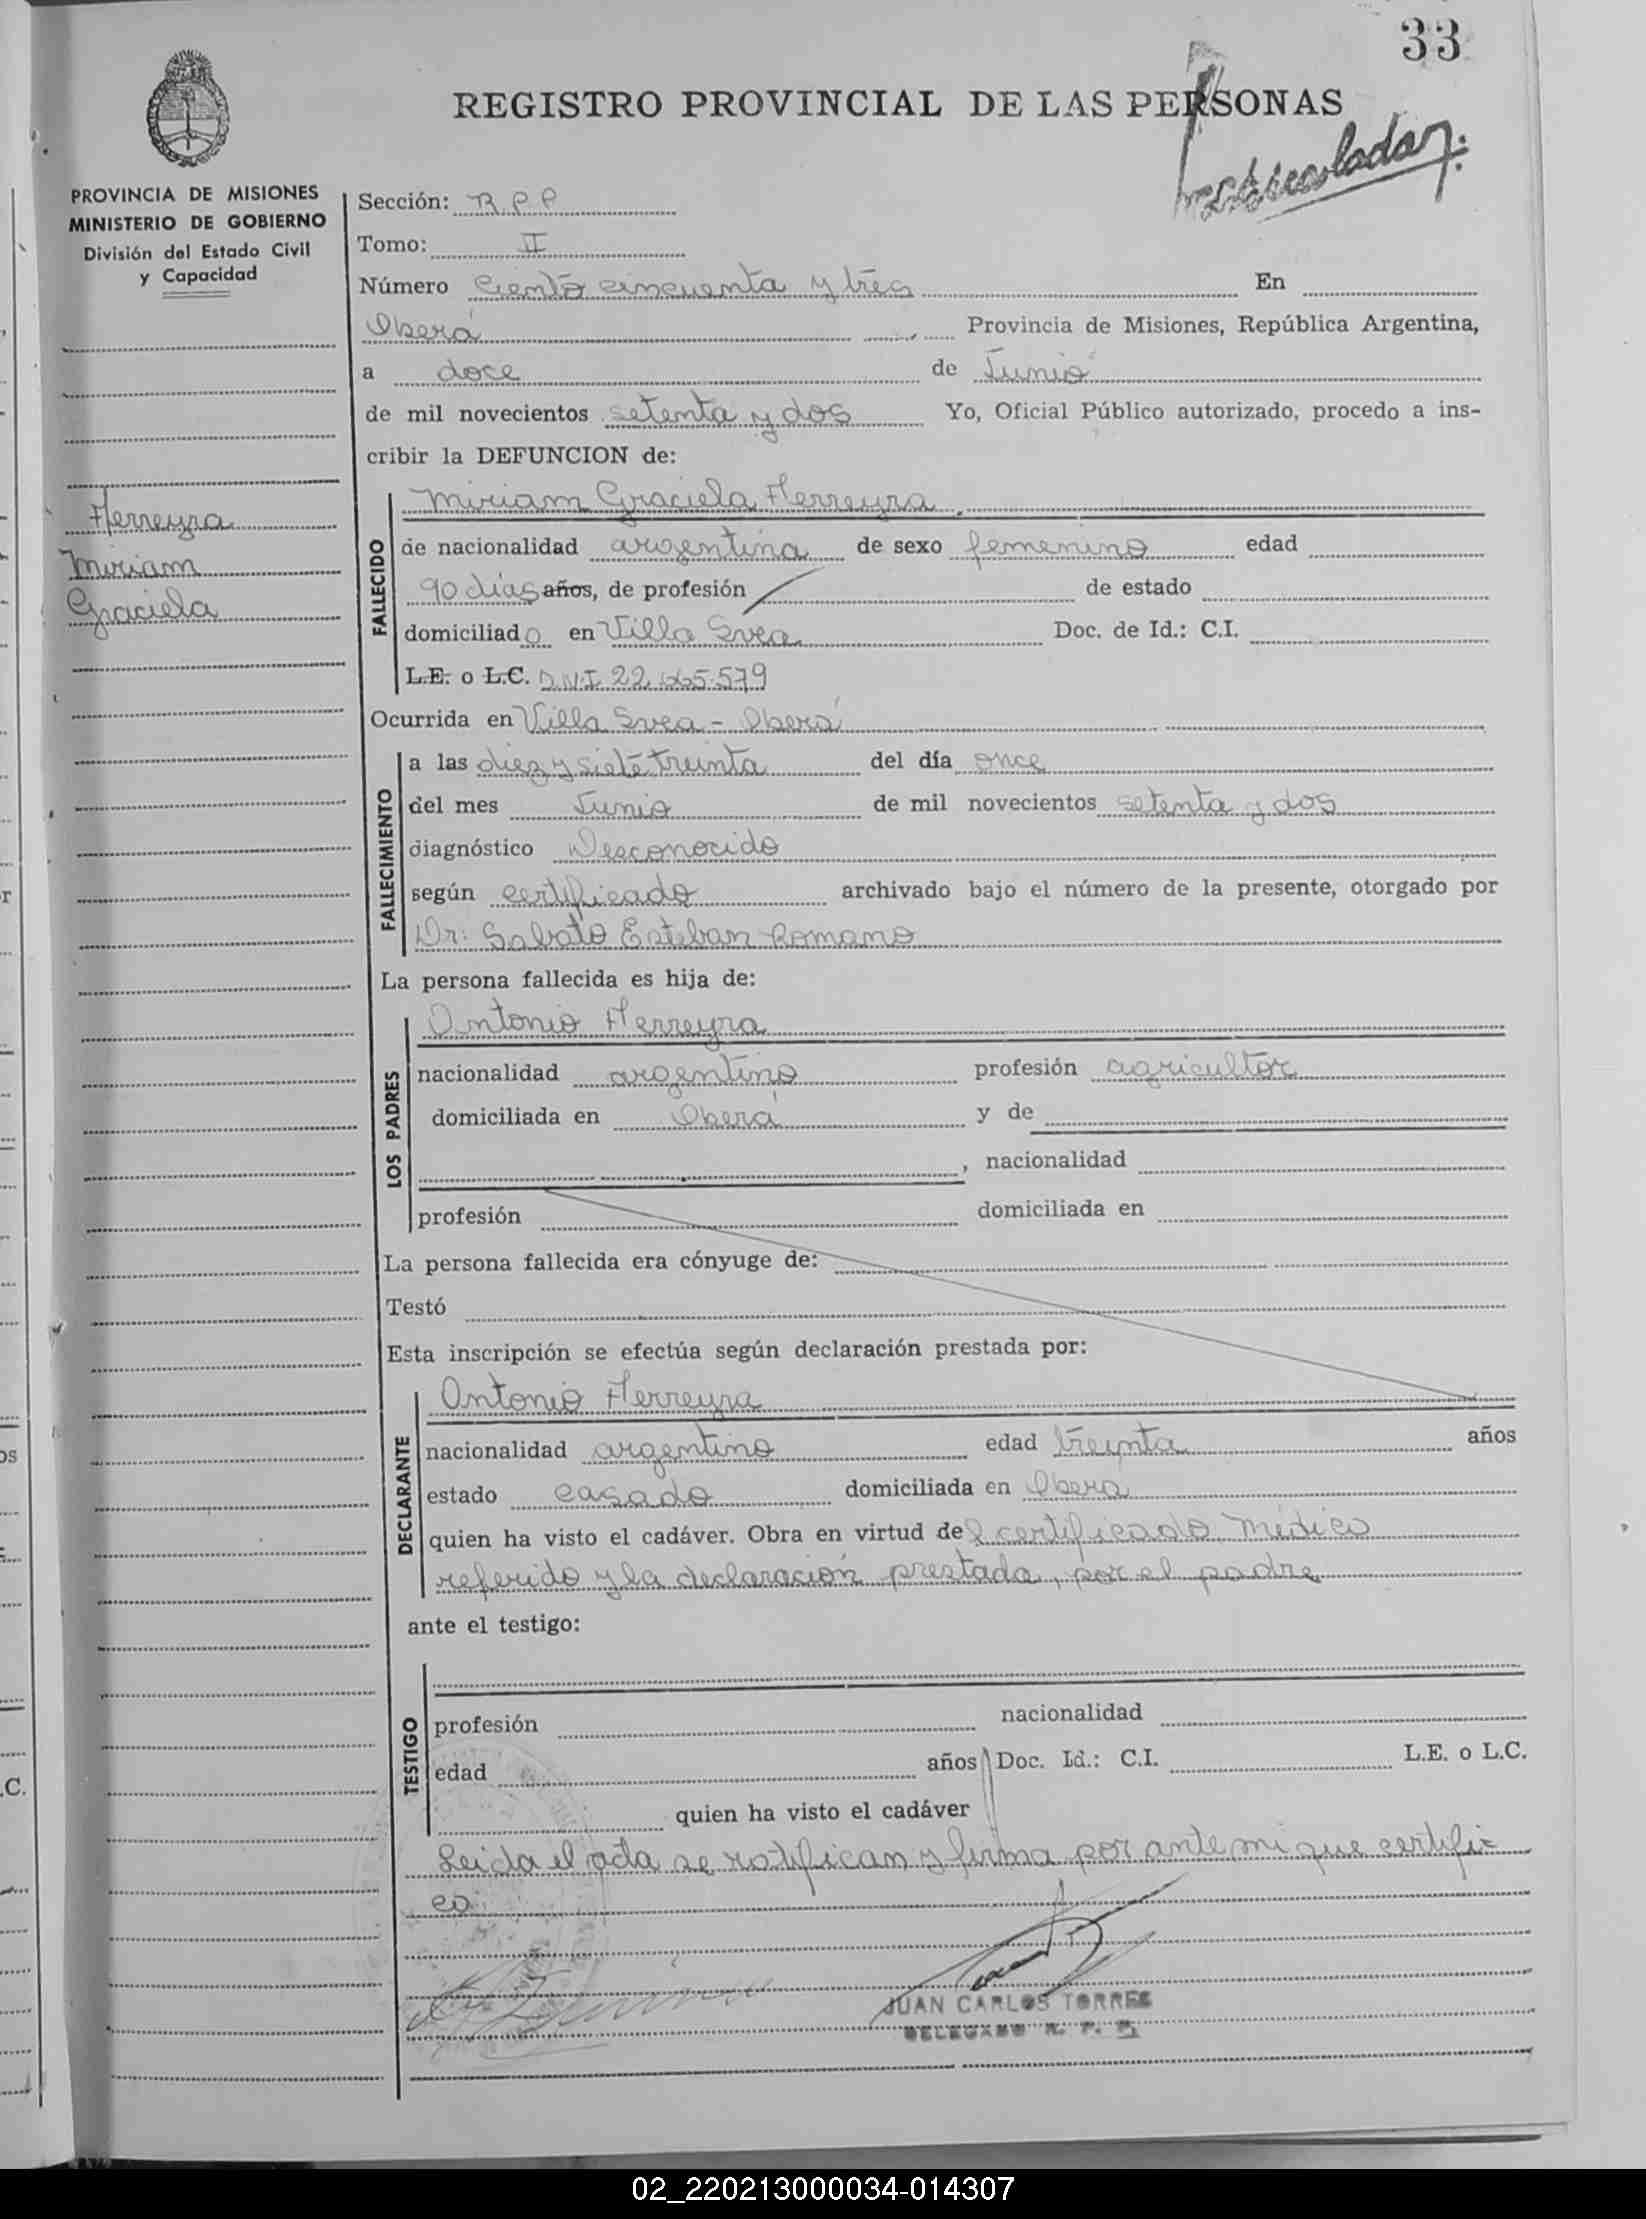 33
REGISTRO PROVINCIAL DE LAS PERSONAS
PROVINCIA DE MISIONES
MINISTERIO DE GOBIERNO
División del Estado Civil
y Capacidad
Herreyra
Miriam
Graciela
Sección: R.P.P
Tomo: II
Número Ciento cincuenta y tres En
Oberá Provincia de Misiones, República Argentina,
a doce de Junio
de mil novecientos setenta y dos Yo, Oficial Público autorizado, procedo a ins-
cribir la DEFUNCION de:
FALLECIDO
Miriam Graciela Herreyra
de nacionalidad argentina de sexo femenino edad
90 días años, de profesión de estado
domiciliado en Villa Svea Doc. de Id.: C.I.
L.E. o L.C. D.N.I 22.665.579
Ocurrida en Villa Svea - Oberá
FALLECIMIENTO
a las diez y siete treinta del día once
del mes Junio de mil novecientos setenta y dos
diagnóstico Desconocido
según certificado archivado bajo el número de la presente, otorgado por
Dr: Sabato Esteban Romano
La persona fallecida es hija de:
LOS PADRES
Antonio Herreyra
nacionalidad argentino profesión agricultor
domiciliada en Oberá y de
, nacionalidad
profesión domiciliada en
La persona fallecida era cónyuge de:
Testó
Esta inscripción se efectúa según declaración prestada por:
DECLARANTE
Antonio Herreyra
nacionalidad argentino edad treinta años
estado casado domiciliada en Obera
quien ha visto el cadáver. Obra en virtud del certificado médico
referido y la declaración prestada, por el padre
ante el testigo:
TESTIGO
profesión nacionalidad
edad años Doc. Id.: C.I. L.E. o L.C.
quien ha visto el cadáver
Leida el acta se ratifican y firma por ante mi que certifi=
co
JUAN CARLOS TORRES
DELEGADO R. P. P.
02_220213000034-014307